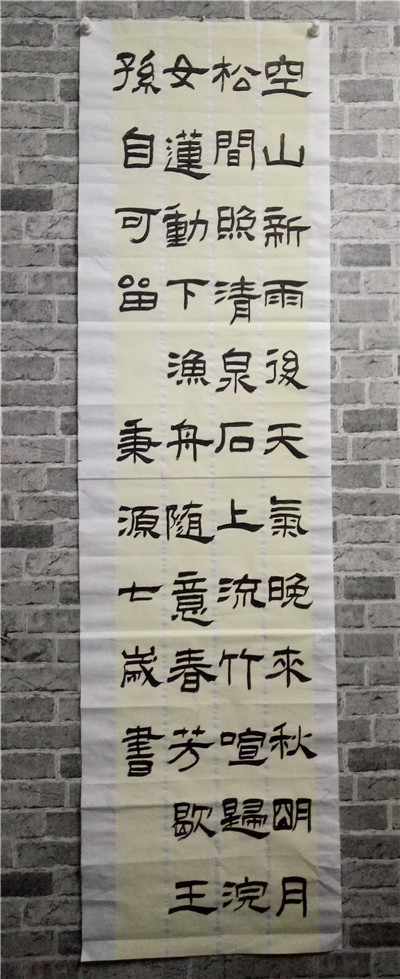 空山新雨後天氣晚來秋朙月
松間照清泉石上流竹喧歸浣
女蓮動下漁舟随意春芳歇王
孫自可留 秉源七歲書